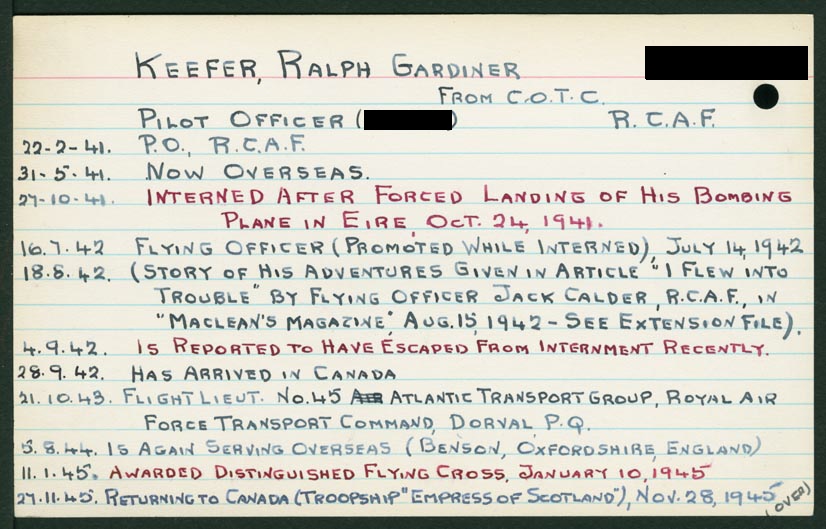 KEEFER, RALPH GARDINER
FROM C.O.T.C.
PILOT OFFICER ( ) R.C.A.F.
22-2-41. P.O., R.C.A.F.
31-5-41. NOW OVERSEAS.
27-10-41. INTERNED AFTER FORCED LANDING OF HIS BOMBING
PLANE IN EIRE, OCT. 24, 1941.
16.7.42 FLYING OFFICER (PROMOTED WHILE INTERNED), JULY 14, 1942
18.8.42. (STORY OF HIS ADVENTURES GIVEN IN ARTICLE "I FLEW INTO
TROUBLE" BY FLYING OFFICER JACK CALDER, R.C.A.F., IN
"MACLEAN'S MAGAZINE", AUG. 15, 1942 - SEE EXTENSION FILE).
4.9.42. IS REPORTED TO HAVE ESCAPED FROM INTERNMENT RECENTLY.
28.9.42. HAS ARRIVED IN CANADA
21.10.43. FLIGHT LIEUT. NO.45 AIR ATLANTIC TRANSPORT GROUP, ROYAL AIR
FORCE TRANSPORT COMMAND, DORVAL P.Q.
5.8.44. IS AGAIN SERVING OVERSEAS (BENSON, OXFORDSHIRE, ENGLAND)
11.1.45. AWARDED DISTINGUISHED FLYING CROSS, JANUARY 10, 1945
27.11.45. RETURNING TO CANADA (TROOPSHIP "EMPRESS OF SCOTLAND"), NOV. 28, 1945
(OVER)